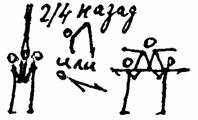 2/4 назад
или